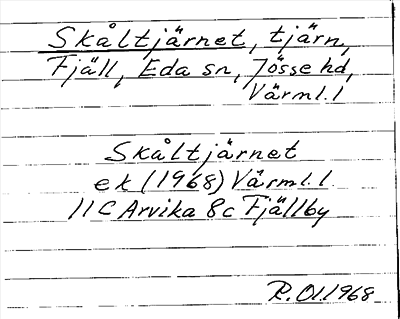 Skåltjärnet, tjärn,
Fjäll, Eda sn, Jösse hd,
Värml. l
Skåltjärnet
ek (1968) Värml. l.
11C Arvika 8c Fjällby
R. Ol. 1968